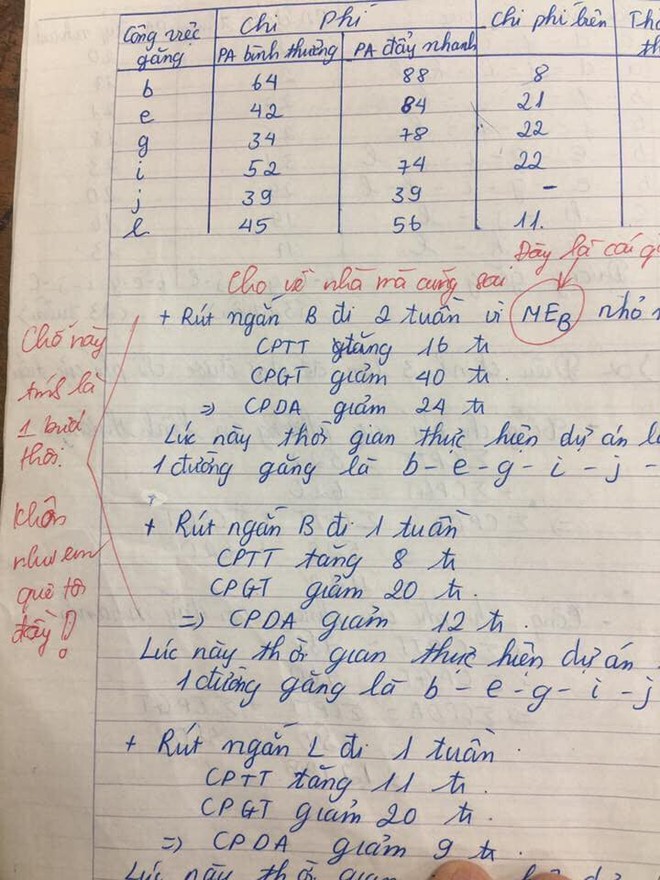 Công việc găng Chi Phí Chi phí biên
PA bình thường PA đẩy nhanh
b 64 88 8
e 42 84 21
g 34 78 22
i 52 74 22
j 39 39 -
l 45 56 11.
Đây là cái
Cho về nhà mà cũng sai
+ Rút ngắn B đi 2 tuần vì MEB nhỏ
CPTT tăng 16 tr
CPGT giảm 40 tr.
=> CPDA giảm 24 tr
Lúc này thời gian thực hiện dự án
1 đường găng là b - e - g - i - j -
Chỗ này
tính là
1 bước
thôi.
Khôn
như em
quê tôi
đầy!
+ Rút ngắn B đi 1 tuần
CPTT tăng 8 tr
CPGT giảm 20 tr.
=> CPDA giảm 12 tr.
Lúc này thời gian thực hiện dự án
1 đường găng là b - e - g - i - j
+ Rút ngắn L đi 1 tuần.
CPTT tăng 11 tr.
CPGT giảm 20 tr.
=> CPDA giảm 9 tr.
Lúc này thời gian